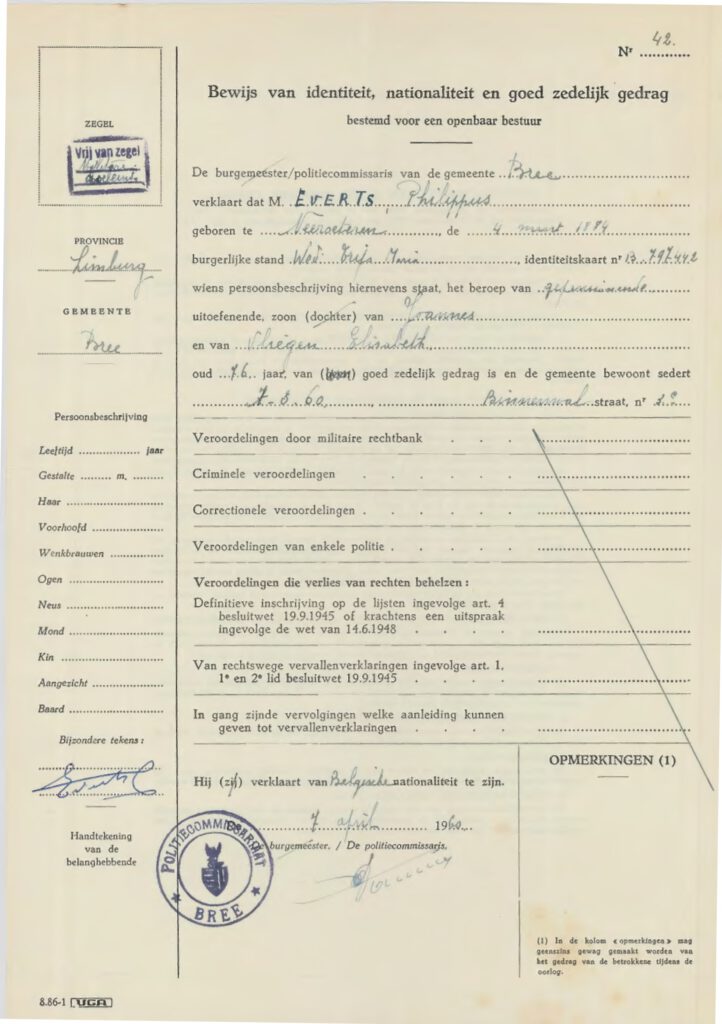 Nr 42.
Bewijs van identiteit, nationaliteit en goed zedelijk gedrag
bestemd voor een openbaar bestuur
ZEGEL
Vrij van zegel
PROVINCIE
Limburg
GEMEENTE
Bree
Persoonsbeschrijving
Leeftijd .................. jaar
Gestalte ........ m. .........
Haar ..........................
Voorhoofd ....................
Wenkbrauwen ..............
Ogen ..........................
Neus ..........................
Mond ..........................
Kin ............................
Aangezicht ...................
Baard .........................
Bijzondere tekens :
Handtekening
van de
belanghebbende
De burgemeester/politiecommissaris van de gemeente Bree
verklaart dat M. EVERTS, Philippus
geboren te Neeroeteren, de 4 maart 1884
burgerlijke stand Wed. Maria, identiteitskaart nr B 797.442
wiens persoonsbeschrijving hiernevens staat, het beroep van gepensioneerde
uitoefenende, zoon (dochter) van Joannes
en van Vliegen Elisabeth
oud 76 jaar, van (een) goed zedelijk gedrag is en de gemeente bewoont sedert
7.3.60, Binnenwal straat, nr
Veroordelingen door militaire rechtbank . . .
Criminele veroordelingen . . . . .
Correctionele veroordelingen . . . . .
Veroordelingen van enkele politie . . . . .
Veroordelingen die verlies van rechten behelzen :
Definitieve inschrijving op de lijsten ingevolge art. 4
besluitwet 19.9.1945 of krachtens een uitspraak
ingevolge de wet van 14.6.1948 . . . .
Van rechtswege vervallenverklaringen ingevolge art. 1,
1e en 2e lid besluitwet 19.9.1945 . . . . .
In gang zijnde vervolgingen welke aanleiding kunnen
geven tot vervallenverklaringen . . . .
Hij (zij) verklaart van Belgische nationaliteit te zijn.
7 april 1960
De burgemeester. / De politiecommissaris.
POLITIECOMMISSARIAAT
BREE
OPMERKINGEN (1)
(1) In de kolom «opmerkingen» mag
geenszins gewag gemaakt worden van
het gedrag van de betrokkene tijdens de
oorlog.
8.86-1 UGA